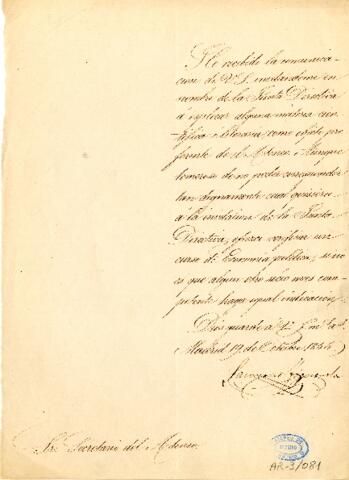 He recibido la comunica-
cion de V. S. invitandome en
nombre de la Junta Directiva
á esplicar alguna materia cien-
tifica ó literaria como objeto pre
ferente de el Ateneo. Aunque
temeroso de no poder corresponder
tan dignamente cual quisiera
á la invitacion de la Junta
Directiva, ofrezco un
curso de Economia politica, si no
es que algun otro sócio mas com-
petente haga igual indicacion.
Dios guarde á V. S. m. a.s
Madrid 19 de Octubre 1844
Sr. Secretario del Ateneo
AR-3/081